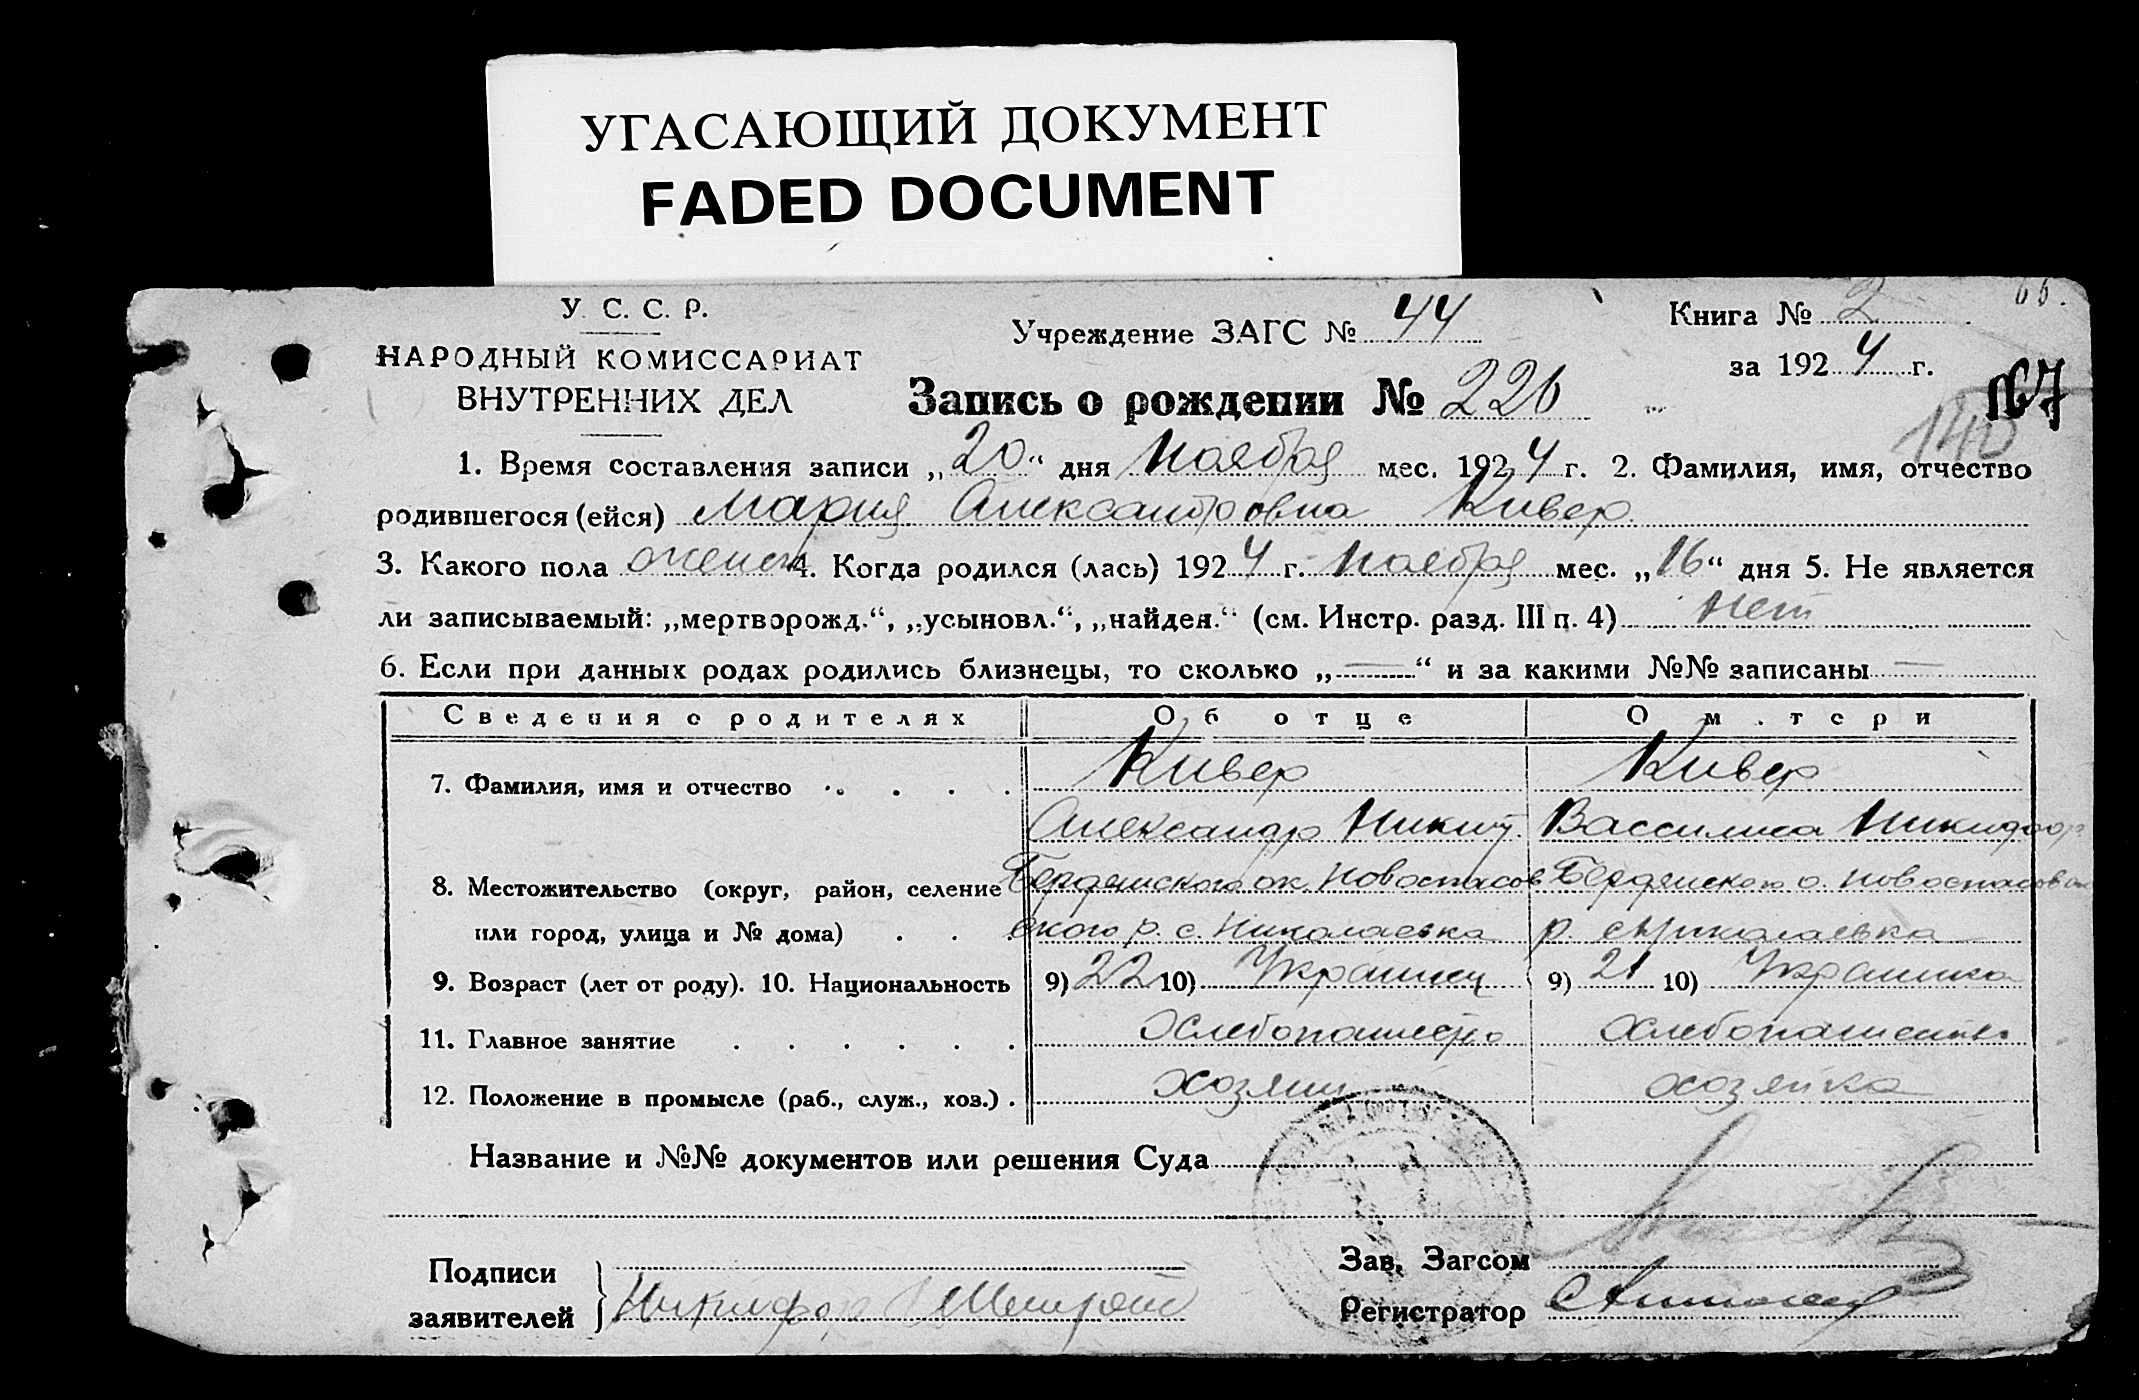 УГАСАЮЩИЙ ДОКУМЕНТ
FADED DOCUMENT
У. С. С. Р.
НАРОДНЫЙ КОМИССАРИАТ
ВНУТРЕННИХ ДЕЛ
Учреждение ЗАГС № 44
Книга № 2
за 1924 г.
66.
Запись о рождении № 226
167
140
1. Время составления записи „20“ дня Ноября мес. 1924 г. 2. Фамилия, имя, отчество
родившегося (ейся) Мария Александровна Кивер
3. Какого пола женск 4. Когда родился (лась) 1924 г. Ноября мес. „16“ дня 5. Не является
ли записываемый: „мертворожд.“, „усыновл.“, „найден.“ (см. Инстр. разд. III п. 4) Нет
6. Если при данных родах родились близнецы, то сколько „—“ и за какими №№ записаны —
Сведения о родителях Об отце О м.тери
7. Фамилия, имя и отчество Кивер Кивер
Александр Никит. Вассилиса Никифор
8. Местожительство (округ, район, селение Бердянского ок. Новоспасов Бердянского о. Новоспасовск
или город, улица и № дома) ского р. с. Николаевка р. с Николаевка
9. Возраст (лет от роду). 10. Национальность 9) 22 10) Украинец 9) 21 10) Украинка
11. Главное занятие Хлебопашество Хлебопашество
12. Положение в промысле (раб., служ., хоз.) хозяин хозяйка
Название и №№ документов или решения Суда
Подписи
заявителей
Никифор
Зав. Загсом
Регистратор